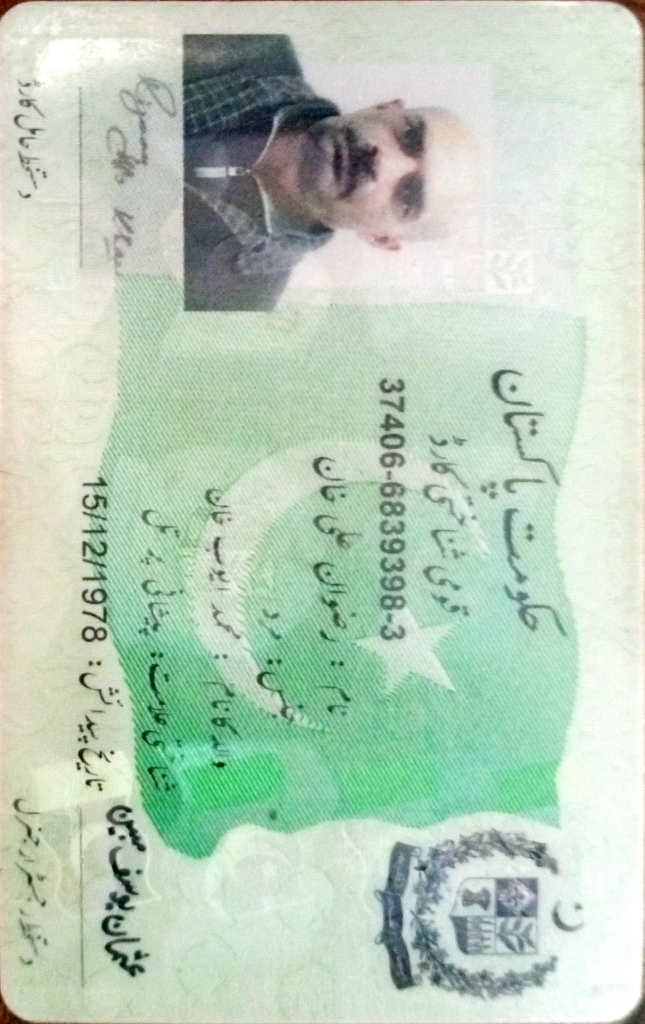 حکومت پاکستان
قومی شناختی کارڈ
37406-6839398-3
نام : رضوان علی خان
جنس : مرد
والد کا نام : محمد ایوب خان
شناختی علامت : پیشانی پر تل
تاریخ پیدائش : 15/12/1978
عثمان یوسف مبین
دستخط رجسٹرار جنرل
دستخط حامل کارڈ